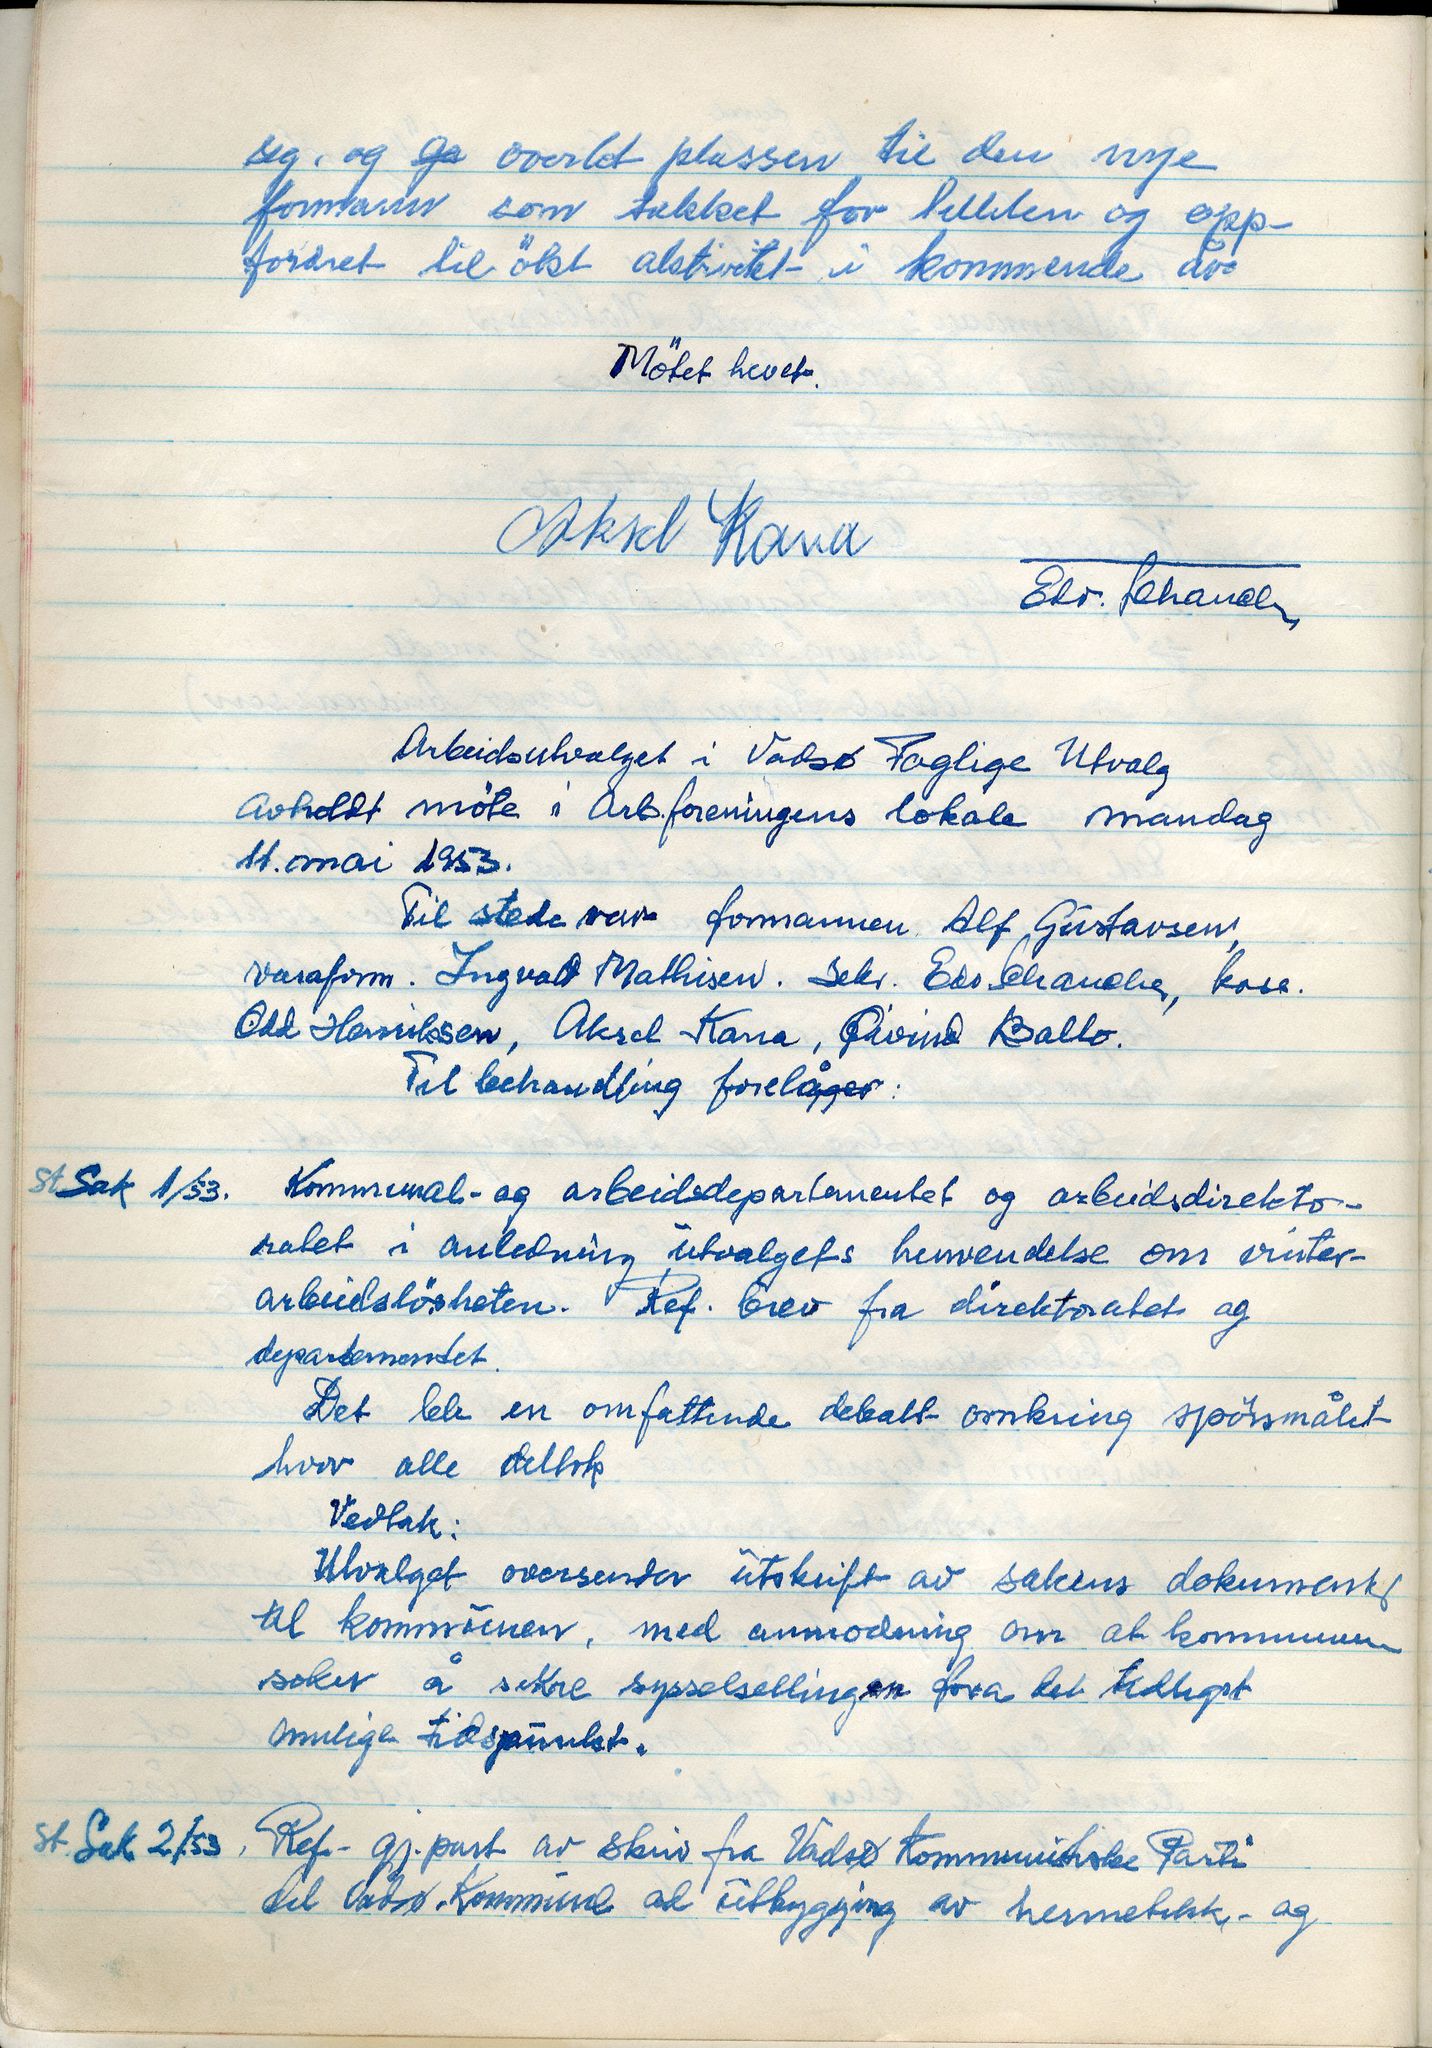 seg, og ga overlot plassen til den nye
formann som takket for tilliten og opp-
fordret til økt aktivitet i kommende år
Mötet hevet.
Aksel Kana
Edv. Schancke
Arbeidsutvalget i Vadsø Faglige Utvalg
avholdt möte i Arb.foreningens lokale mandag
11. mai 1953.
Til stede var formannen Alf Gustavsen,
varaform. Ingvald Mathisen. Sekr. Edv. Schancke, kass.
Odd Henriksen, Aksel Kana, Øivind Ballo.
Til behandling forelå:
St. Sak 1/53. Kommunal- og arbeidsdepartementet og arbeidsdirekto-
ratet i anledning utvalgets henvendelse om vinter-
arbeidslösheten. Ref. brev fra direktoratet og
departementet.
Det ble en omfattende debatt omkring spörsmålet
hvor alle deltok
Vedtak:
Utvalget oversender utskrift av sakens dokument
til kommunen, med anmodning om at kommunen
söker å sikre sysselsettingen fra det tidligst
mulige tidspunkt.
St. Sak 2/53. Ref. gj.part av skriv fra Vadsø Kommunistiske Parti
til Vadsø Kommune ad utbygging av hermetikk- og